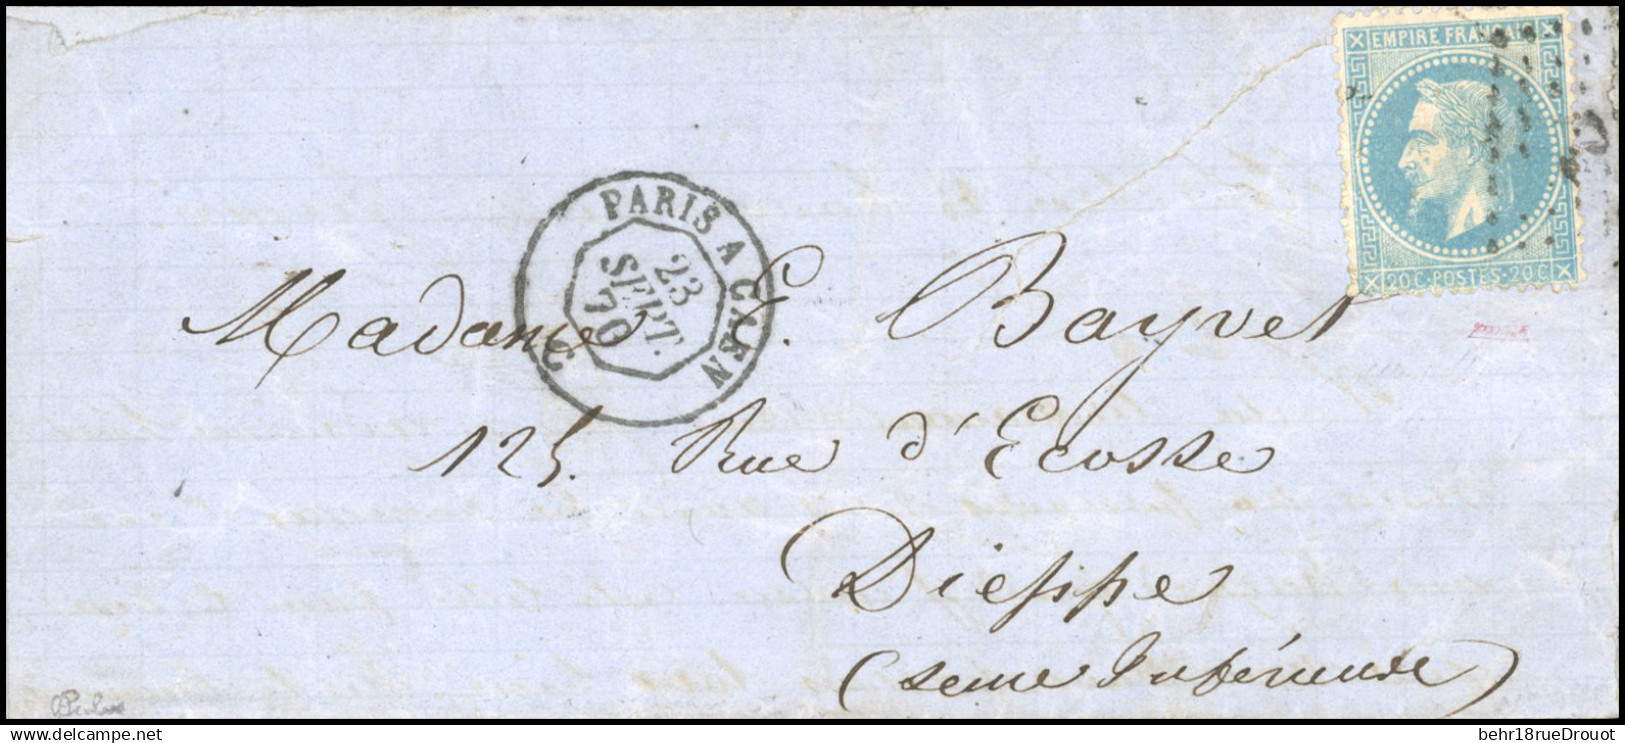 EMPIRE FRANÇAIS
20 C - POSTES - 20 C
PARIS A CAEN
23
SEPT.
70
Madame E. Bayvet
125, Rue d'Ecosse
Dieppe
(Seine Inférieure)
delcampe.net
behr18rueDrouot